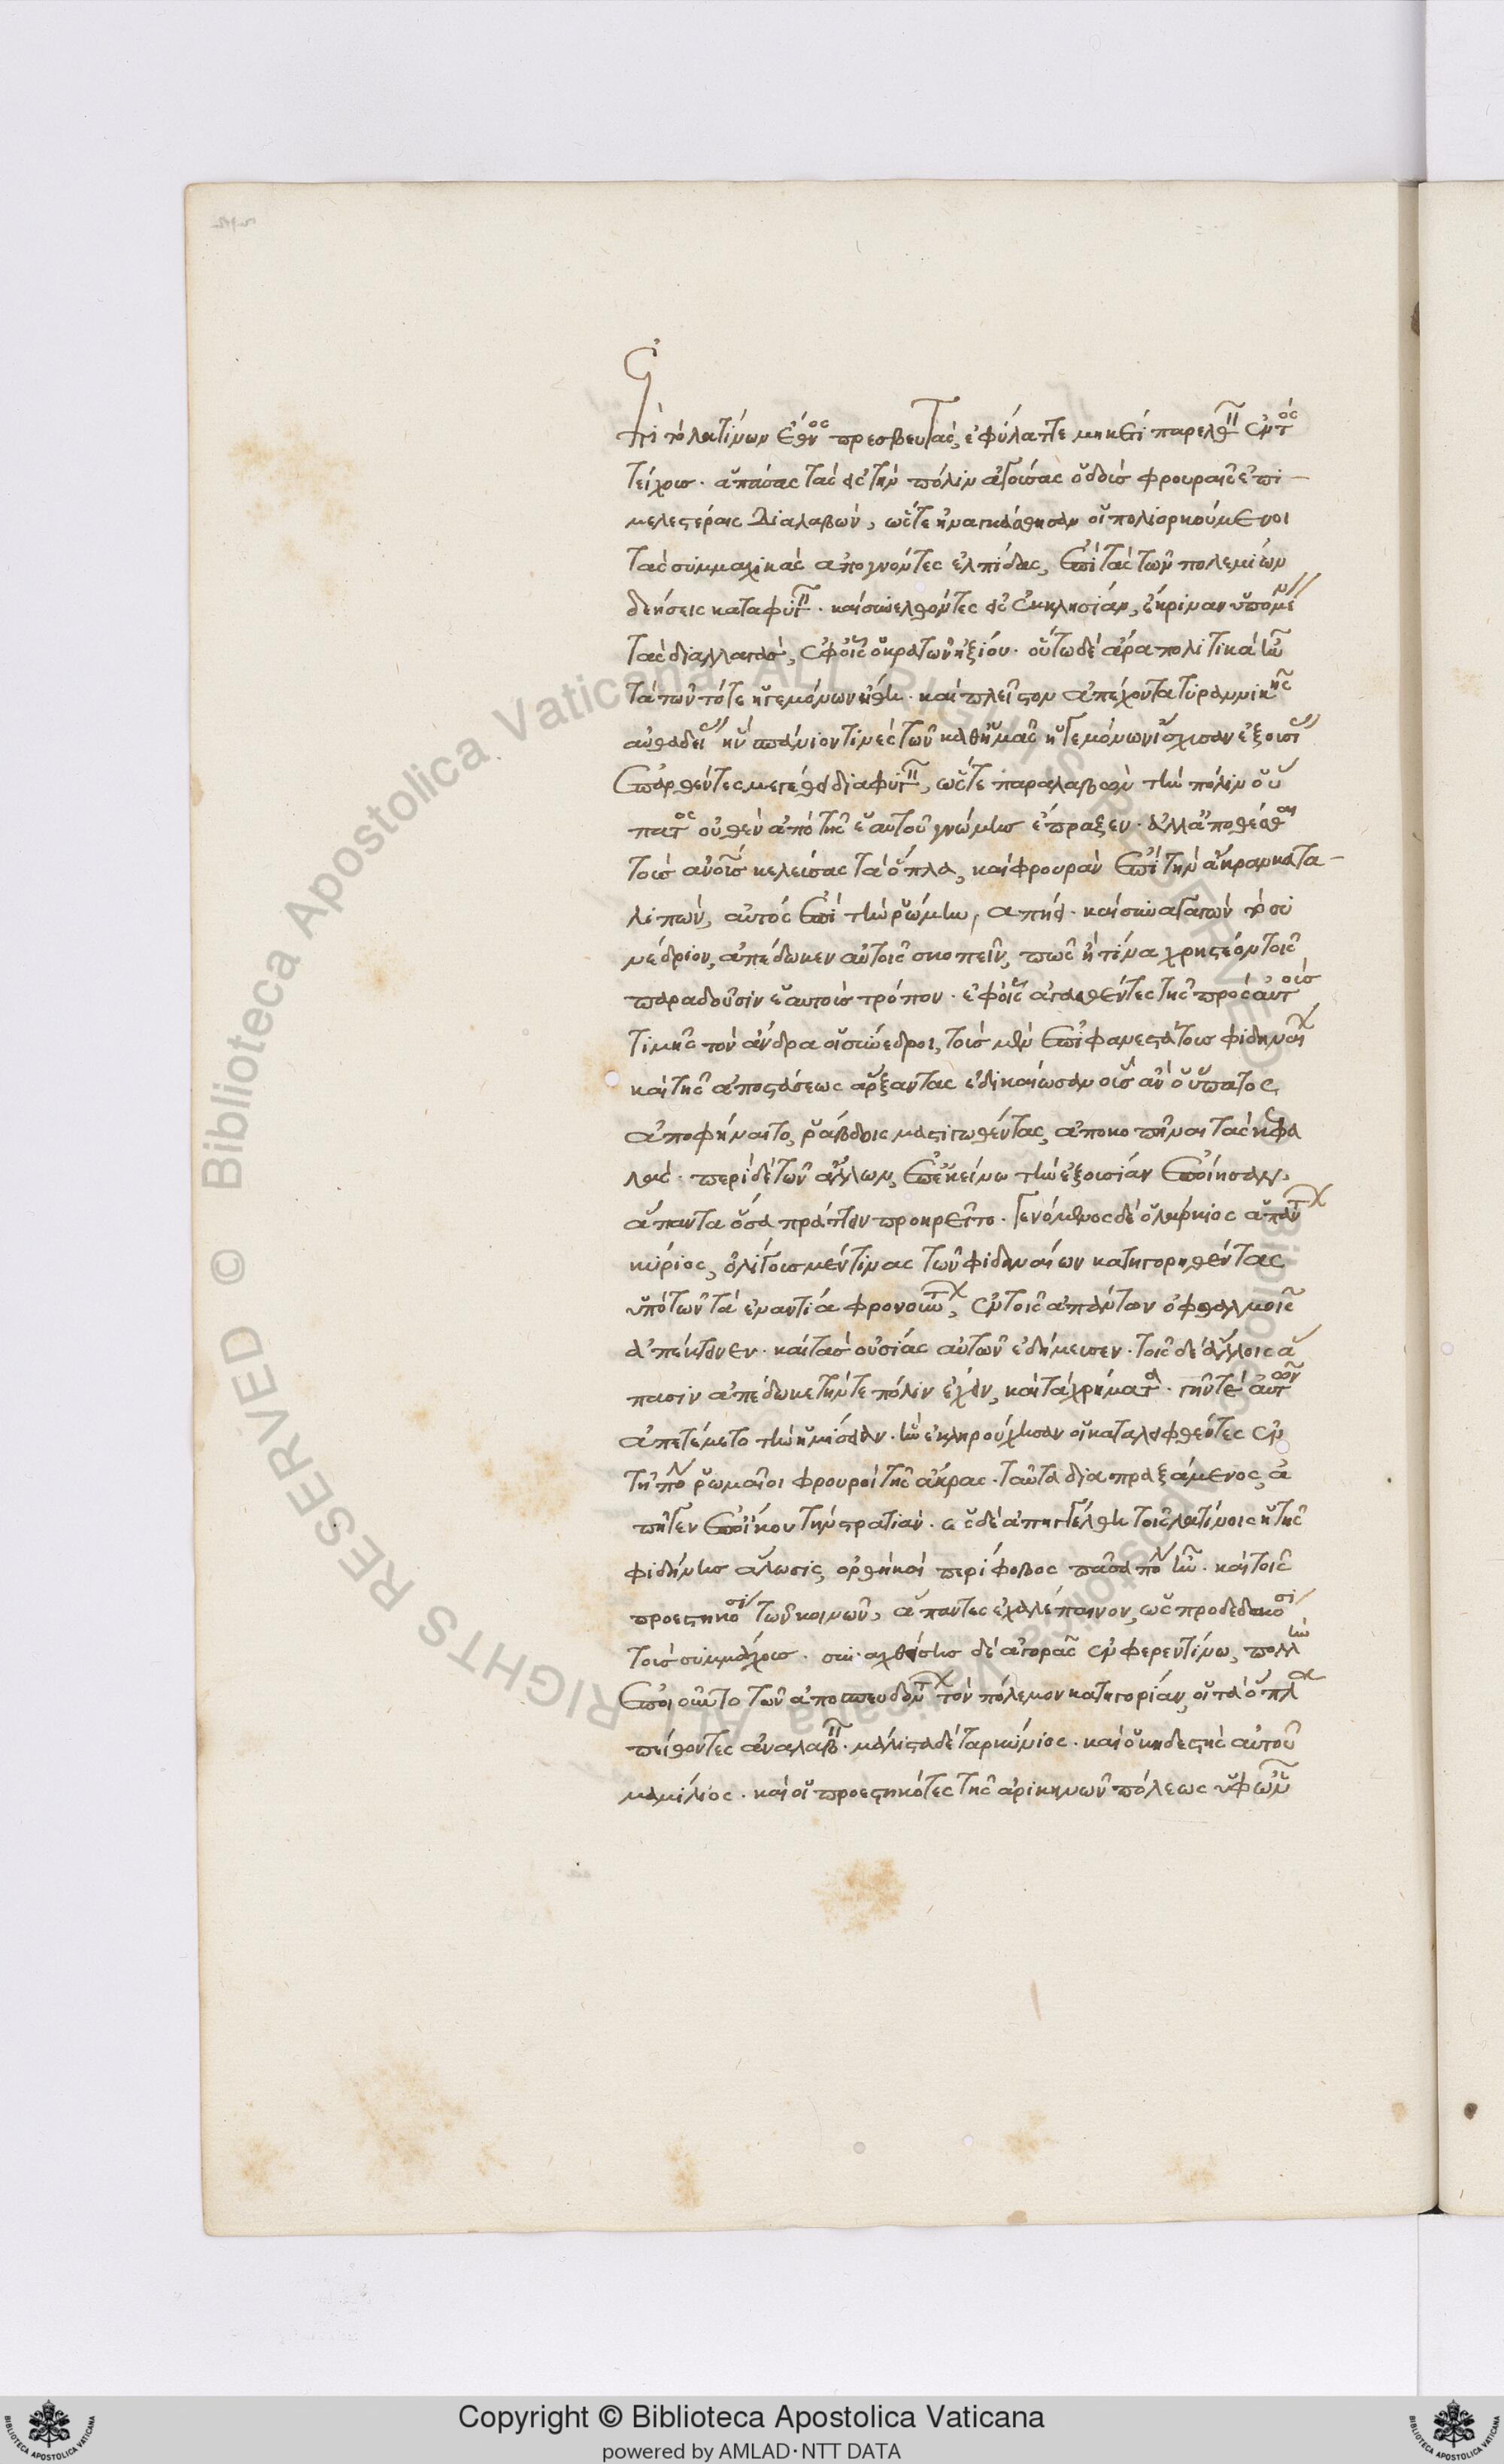 ἐπὶ τὸ λατίνων ἔθνος πρεσβευτὰς, ἐφύλαττε μηκέτι παρελθεῖν ἐντὸς
τείχους. ἁπάσας τὰς εἰς τὴν πόλιν ἀγούσας ὁδοὺς φρουραῖς ἐπι-
μελεστέραις διαλαβών, ὥστε ἠναγκάσθησαν οἱ πολιορκούμενοι
τὰς συμμαχικὰς ἀπογνόντες ἐλπίδας, ἐπὶ τὰς τῶν πολεμίων
δεήσεις καταφυγεῖν. καὶ συνελθόντες εἰς ἐκκλησίαν, ἔκριναν ὑπομένειν
τὰς διαλλαγὰς, ἐφ' οἷς ὁ κρατῶν ἠξίου. οὕτω δὲ ἄρα πολιτικὰ ἦν
τὰ τῶν τότε ἡγεμόνων ἤθη. καὶ πλεῖστον ἀπέχοντα τυραννικῆς
αὐθαδείας ἣν σπάνιόν τινες τῶν καθ' ἡμᾶς ἡγεμόνων ἴσχυσαν ἐξουσίας
ἐπαρθέντες μεγέθει διαφυγεῖν, ὥστε παραλαβὼν τὴν πόλιν ὁ ὕ
πατος οὐθὲν ἀπὸ τῆς ἑαυτοῦ γνώμης ἔπραξεν. ἀλλ' ἀποθέσθαι
τοὺς ἀνθρώπους κελεύσας τὰ ὅπλα, καὶ φρουρὰν ἐπὶ τὴν ἄκραν κατα-
λιπὼν, αὐτὸς ἐπὶ τὴν ῥώμην, ἀπῄει. καὶ συναγαγὼν τὸ συ
νέδριον, ἀπέδωκεν αὐτοῖς σκοπεῖν, πῶς ἢ τίνα χρηστέον τοῖς
παραδοῦσιν ἑαυτοὺς τρόπον. ἐφ' οἷς ἀγασθέντες τῆς πρὸς αὐτοὺς
τιμῆς τὸν ἄνδρα οἱ σύνεδροι, τοὺς μὲν ἐπιφανεστάτους φιδηναίων
καὶ τῆς ἀποστάσεως ἄρξαντας ἐδικαίωσαν οὓς ἂν ὁ ὕπατος
ἀποφήναιτο, ῥάβδοις μαστιγωθέντας, ἀποκοπῆναι τὰς κεφα
λάς. περὶ δὲ τῶν ἄλλων, ἐπ' ἐκείνω τὴν ἐξουσίαν ἐποίησαν,
ἅπαντα ὅσα πράττειν προῃρεῖτο. γενόμενος δὲ ὁ λάρκιος ἁπάντων
κύριος, ὀλίγους μέν τινας τῶν φιδηναίων κατηγορηθέντας
ὑπὸ τῶν τὰ ἐναντία φρονούντων, ἐν τοῖς ἁπάντων ὀφθαλμοῖς
ἀπέκτεινεν. καὶ τὰς οὐσίας αὐτῶν ἐδήμευσεν. τοῖς δὲ ἄλλοις ἅ
πασιν ἀπέδωκε τήν τε πόλιν ἔχειν, καὶ τὰ χρήματα. γῆν τε αὐτῶν
ἀπετέμετο τὴν ἡμίσειαν. ἣν ἐκληρούχησαν οἱ καταλειφθέντες ἐν
τῆ πόλει ῥωμαῖοι φρουροὶ τῆς ἄκρας. ταῦτα διαπραξάμενος, ἀ
πῆγεν ἐπ' οἴκου τὴν στρατιάν. ὡς δὲ ἀπηγγέλθη τοῖς λατίνοις ἡ τῆς
φιδήνης ἅλωσις, ὀρθὴ καὶ περίφοβος πᾶσα πόλις ἦν. καὶ τοῖς
προεστηκόσι τῶν κοινῶν, ἅπαντες ἐχαλέπαινον, ὡς προδεδωκόσι
τοὺς συμμάχους. συναχθείσης δὲ ἀγορᾶς ἐν φερεντίνω, πολλὴν
ἐποιοῦντο τῶν ἀποσπευδόντων τὸν πόλεμον κατηγορίαν, οἱ τὰ ὅπλα
πείθοντες ἀναλαβεῖν. μάλιστα δὲ ταρκύνιος. καὶ ὁ κηδεστὴς αὐτοῦ
μαμίλιος. καὶ οἱ προεστηκότες τῆς ἀρικηνῶν πόλεως ὑφ' ὧν
Copyright © Biblioteca Apostolica Vaticana
powered by AMLAD·NTT DATA